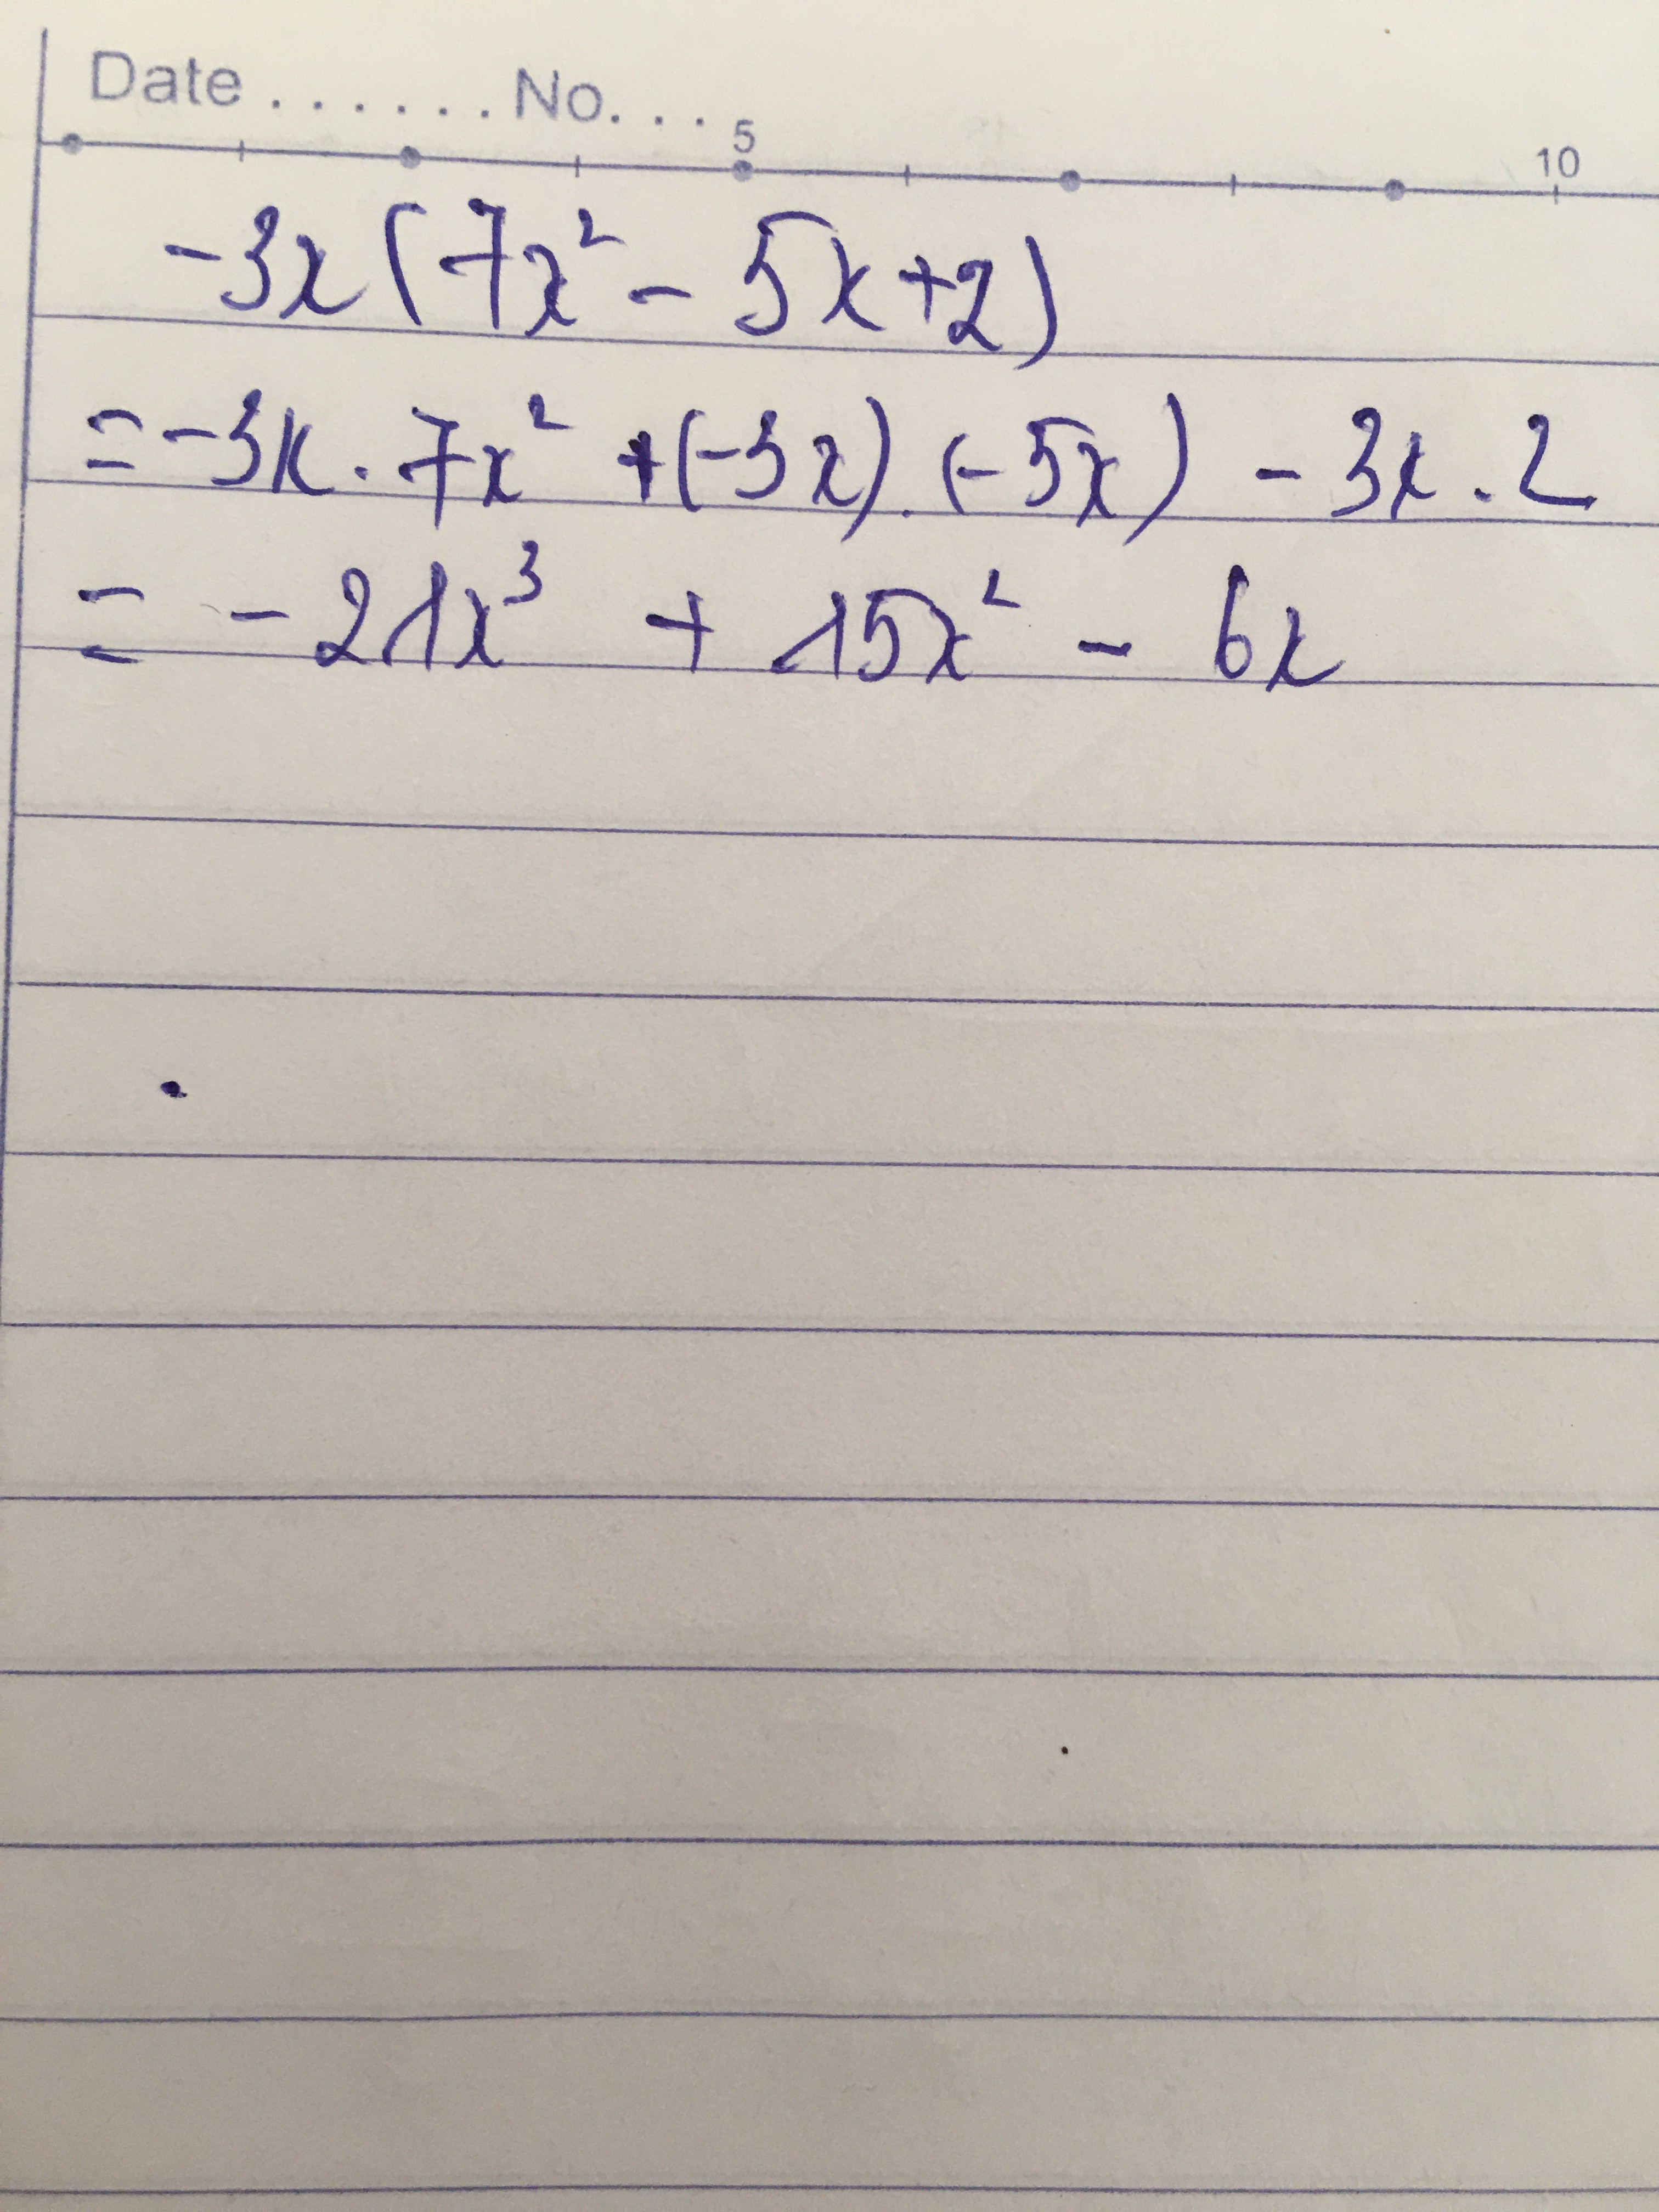 Date . . . . . . No. . . .
5 10
-3x(7x² - 5x+2)
= -3x . 7x² + (-3x) . (-5x) - 3x . 2
= - 21x³ + 15x² - 6x